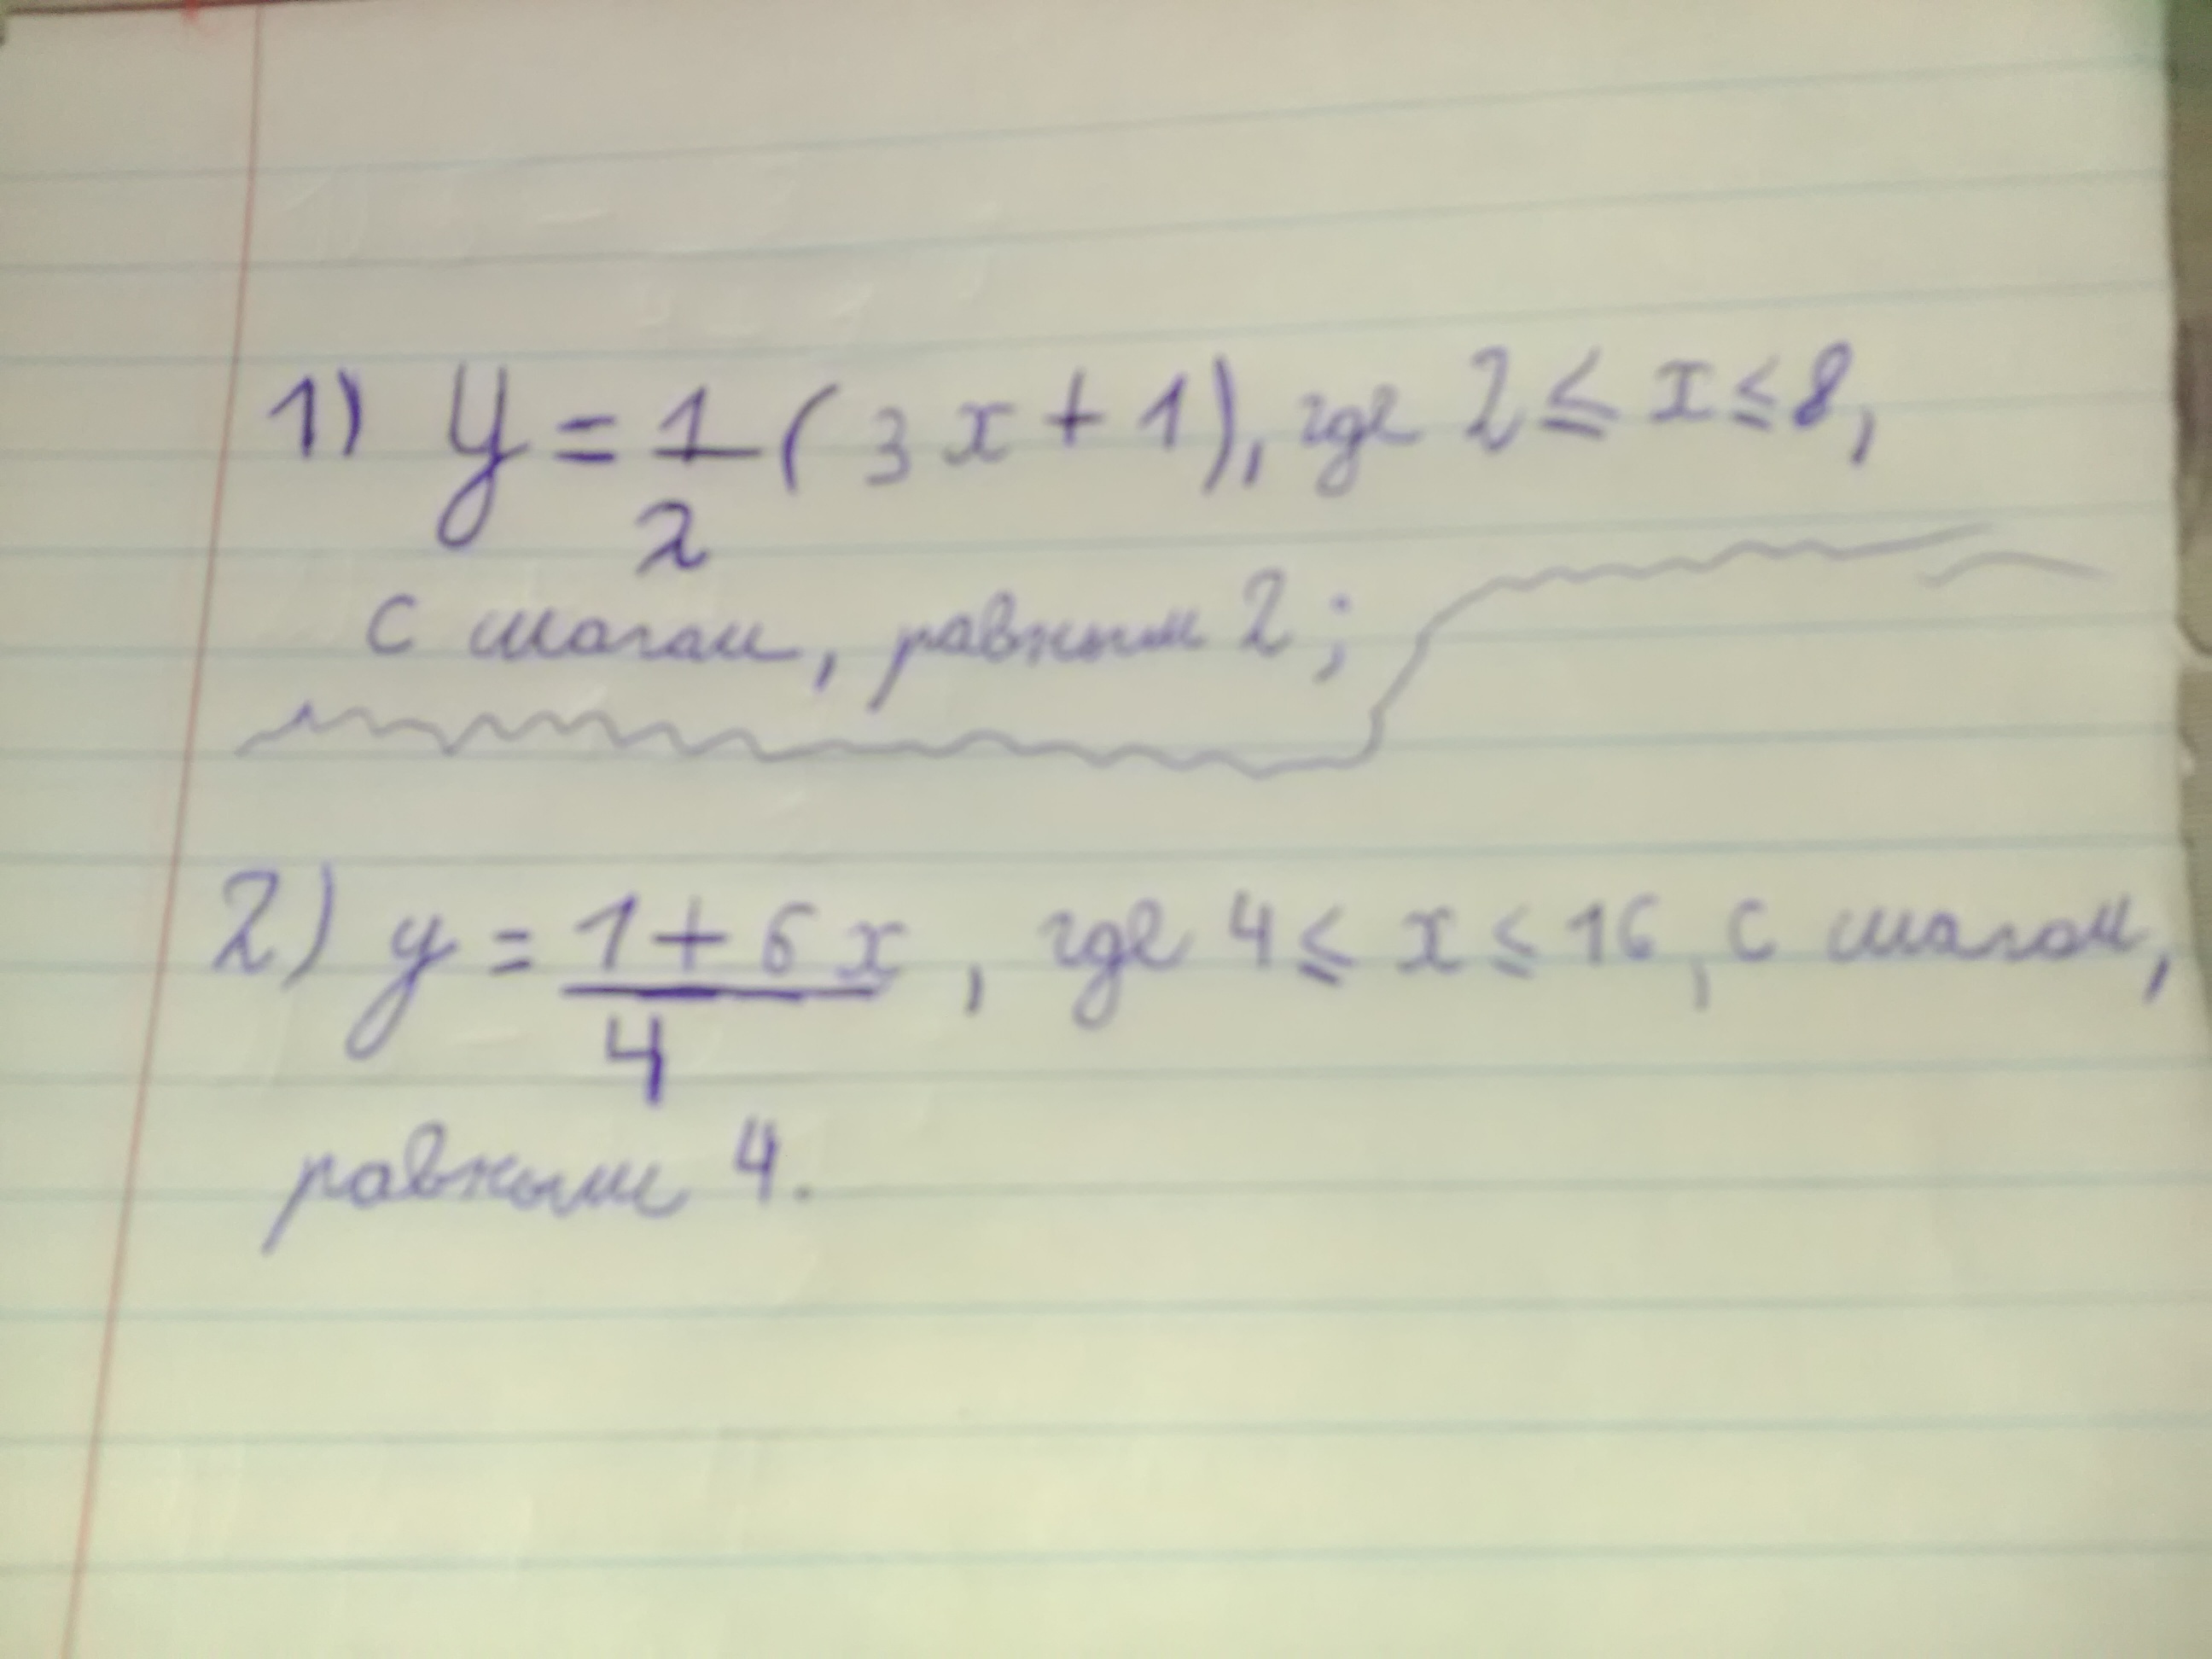 1) y = 1/2 (3x + 1), где 2 ≤ x ≤ 8,
с шагом, равным 2;
2) y = (1 + 6x)/4, где 4 ≤ x ≤ 16, с шагом,
равным 4.